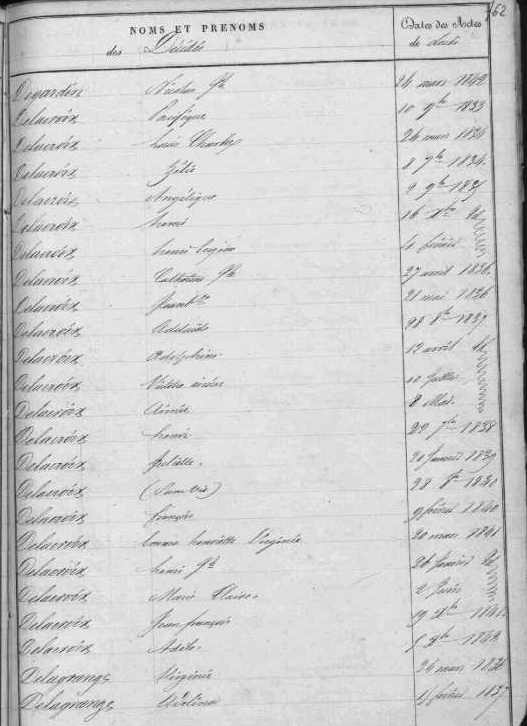 162
NOMS ET PRENOMS
Dates des Actes
des Décédés
de décès
Dejardin Nicolas Jh 24 mars 1842
Delacroix Pacifique 10 9bre 1833
Delacroix Louis Charles 24 mars 1834
Delacroix Zélie 8 7bre 1834
Delacroix Angélique 9 9bre 1835
Delacroix henri 16 Xbre id
Delacroix henri Eugène février
Delacroix Catherine Jh 27 avril 1836
Delacroix 21 mai 1836
Delacroix Adélaïde 8bre 1837
Delacroix Adolphine 12 avril id
Delacroix 10 Juillet
Delacroix Aimée 8
Delacroix henri 22 7bre 1838
Delacroix Juliette 20 Janvier 1839
Delacroix 28 1840
Delacroix françois 9 février 1840
Delacroix henriette Virginie 20 mars 1841
Delacroix henri Jh 26 Janvier id
Delacroix Marie Claire 2 Juin
Delacroix Jean françois 19 Xbre 1841
Delacroix Adèle Xbre 1842
Delagrange Virginie 24 mars 1836
Delagrange février 1837